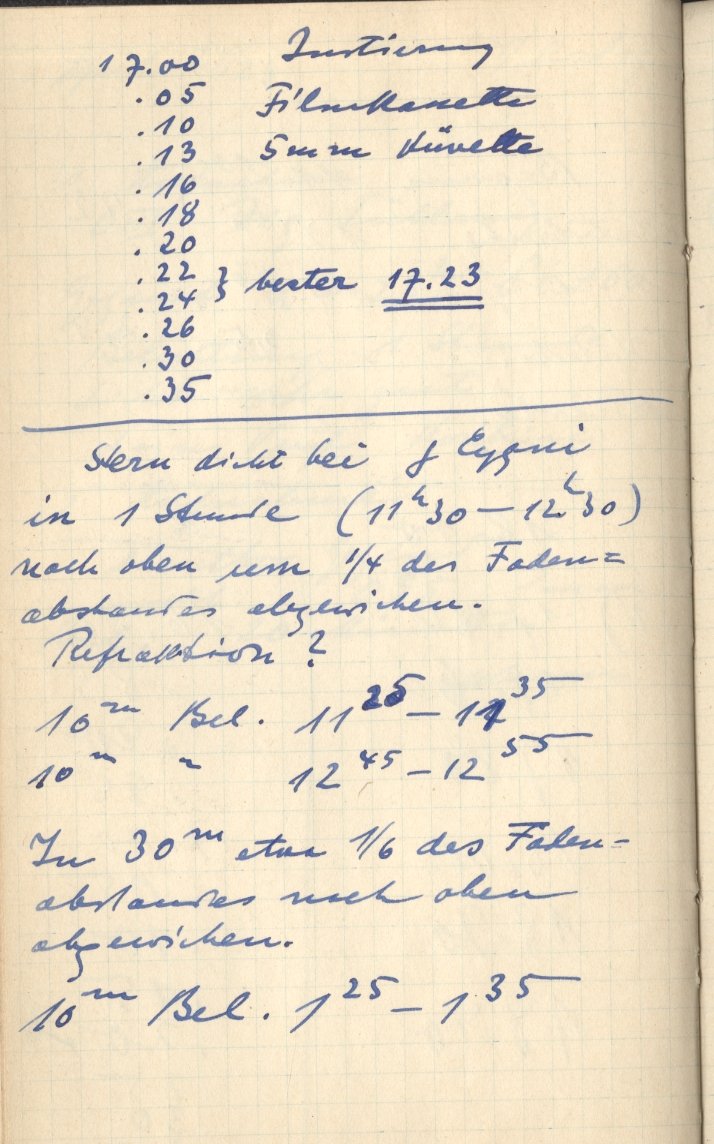 17.00 Justierung
.05 Filmkassette
.10
.13 5mm Küvette
.16
.18
.20
.22
.24 } bester 17.23
.26
.30
.35
Stern dicht bei γ Cygni
in 1 Stunde (11h30 — 12h30)
nach oben um 1/4 des Faden=
abstandes abgewichen.
Refraktion?
10m Bel. 11 25 — 11 35
10m " 12 45 — 12 55
In 30m etwa 1/6 des Faden-
abstandes nach oben
abgewichen.
10m Bel. 1 25 — 1 35